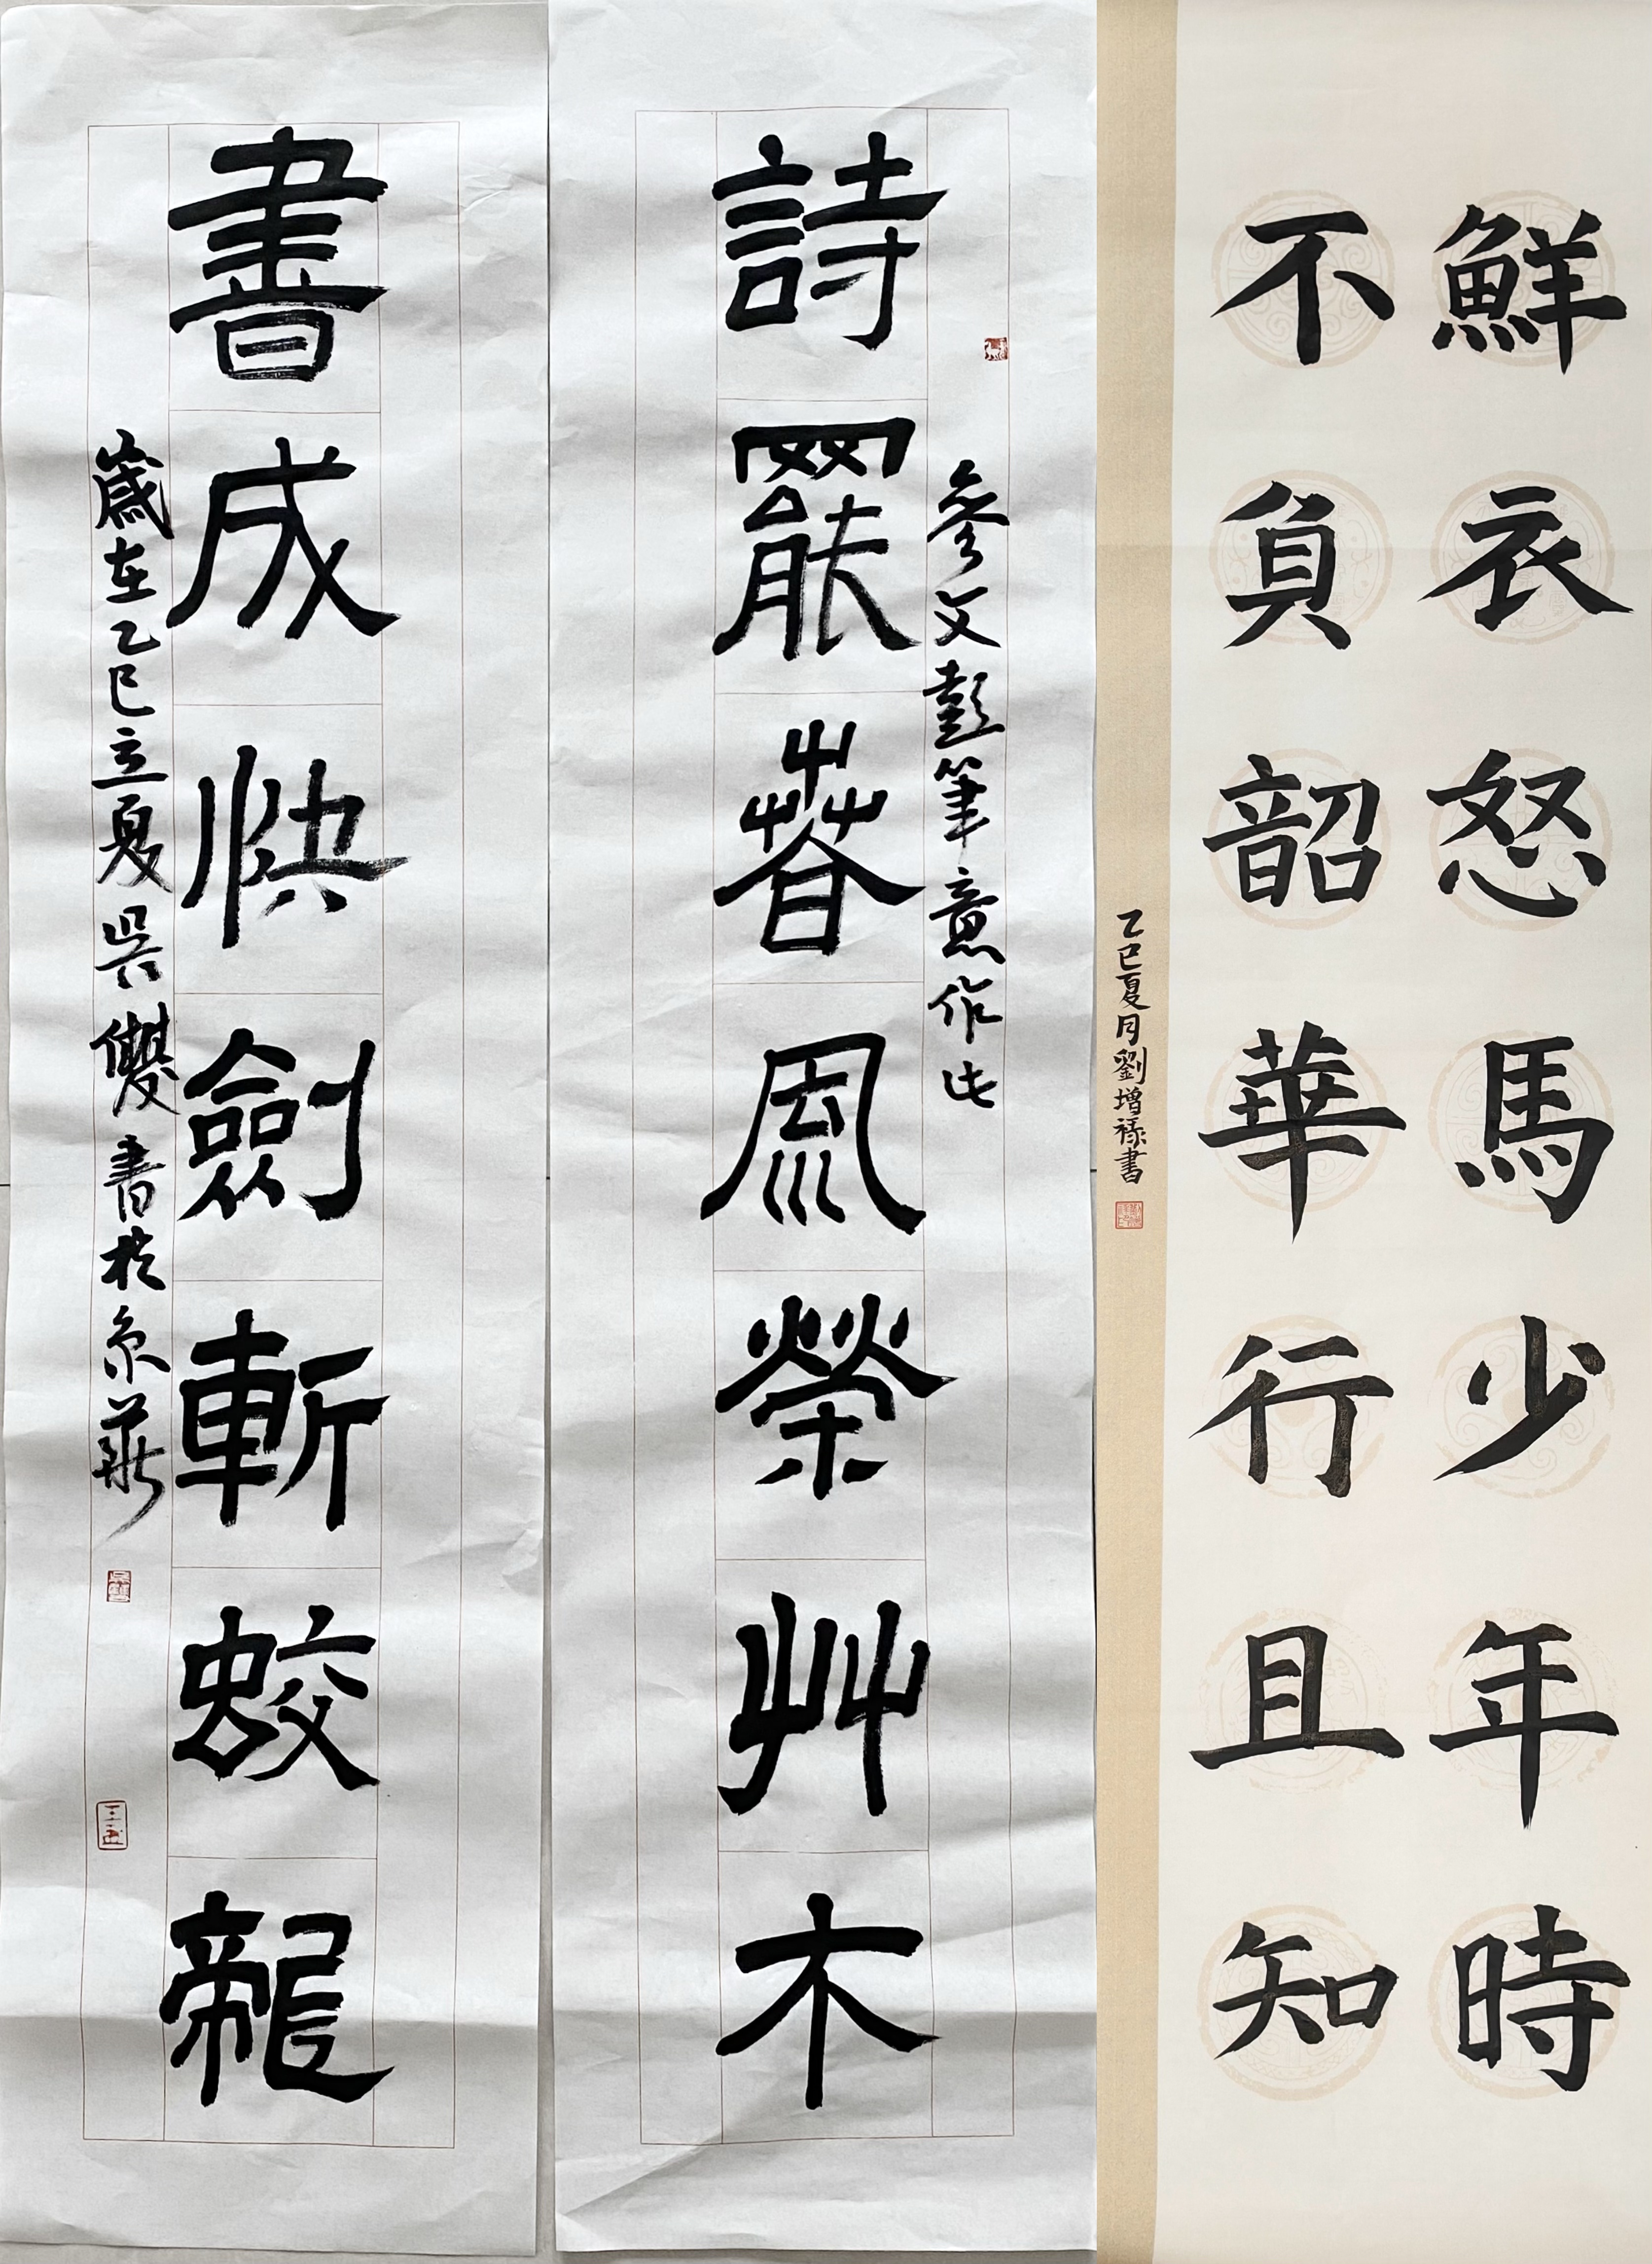 鮮衣怒馬少年時
不負韶華行且知
乙巳夏月劉增祿書
參文彭筆意作此
詩罷春風榮艸木
書成快劍斬蛟龍
歲在乙巳立夏吳雙書於京蘇